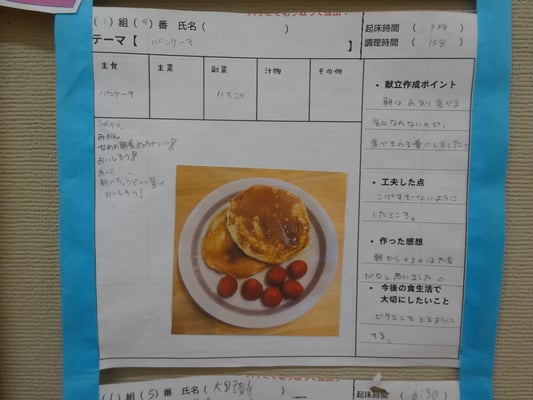 (1)組(4)番 氏名( )
テーマ【 パンケーキ 】
起床時間( 時 )
調理時間( 15分 )
主食 主菜 副菜 汁物 その他
パンケーキ いちご
・献立作成ポイント
朝はあまり食べる
気になれないので、
食べきれる量にしました。
おいしそう!
朝にちょうどいい量で
おいしそう!
・工夫した点
こげすぎないように
したところ。
・作った感想
朝から作るのは大変
だなと思いました。
・今後の食生活で
大切にしたいこと
ビタミンをとるように
する。
(1)組(5)番 氏名(
起床時間( 6:30 )